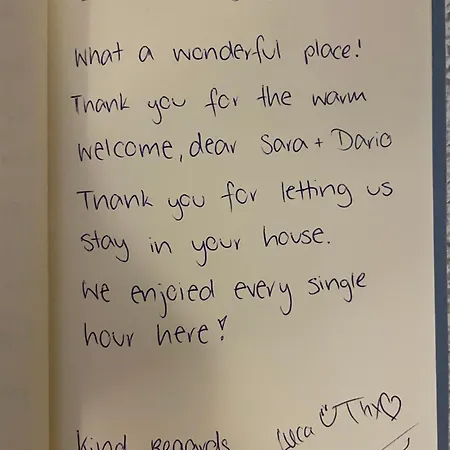 What a wonderful place!
Thank you for the warm
welcome, dear Sara + Dario
Thank you for letting us
stay in your house.
We enjoied every single
hour here!
Luca Thx
Kind Regards